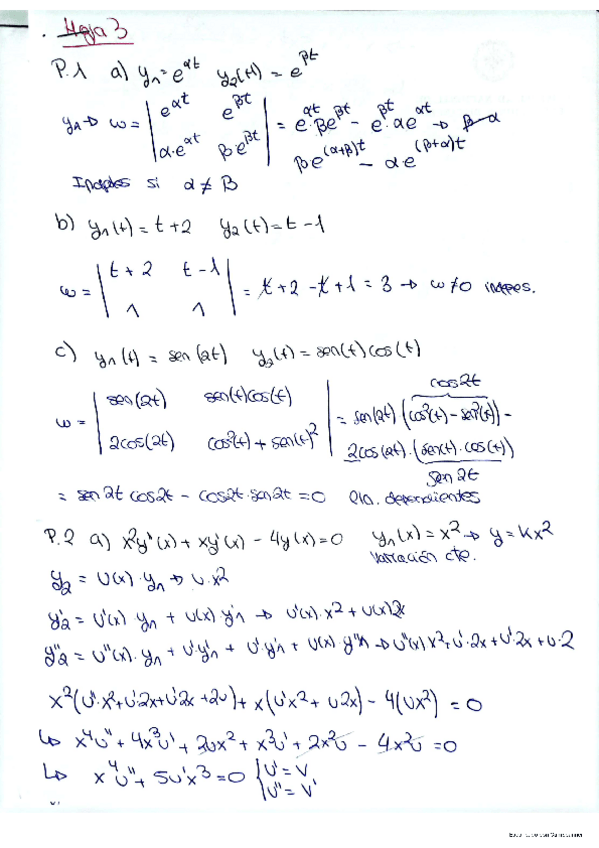 . Hoja 3
P.1 a) y₁ = e^{αt} y₂(t) = e^{βt}
y₁ → ω = | e^{αt} e^{βt} ; α·e^{αt} β·e^{βt} | = e^{αt}·βe^{βt} - e^{βt}·αe^{αt} → β-α
βe^{(α+β)t} - αe^{(β+α)t}
si α ≠ β
b) y₁(t) = t+2 y₂(t) = t-1
ω = | t+2 t-1 ; 1 1 | = t+2-t+1 = 3 → ω≠0 indpes.
c) y₁(t) = sen(2t) y₂(t) = sen(t)cos(t)
ω = | sen(2t) sen(t)cos(t) ; 2cos(2t) cos²(t)+sen(t)² | = sen(2t)(cos²(t)-sen²(t)) -
cos2t
2cos(2t)·(sen(t)·cos(t))
sen 2t
= sen2t cos2t - cos2t·sen2t = 0 lin. dependientes
P.2 a) x²y''(x) + xy'(x) - 4y(x) = 0 y₁(x) = x² → y = kx²
variación cte.
y₂ = u(x)·y₁ → u·x²
y'₂ = u'(x)·y₁ + u(x)·y'₁ → u'(x)·x² + u(x)2x
y''₂ = u''(x)·y₁ + u'·y'₁ + u'·y'₁ + u(x)·y''₁ → u''(x)x² + u'·2x + u'·2x + u·2
x²(u''·x² + u'·2x + u'2x + 2u) + x(u'x² + u2x) - 4(ux²) = 0
↳ x⁴u'' + 4x³u' + 2ux² + x³u' + 2x²u - 4x²u = 0
↳ x⁴u'' + 5u'x³ = 0 { u' = v
u'' = v'